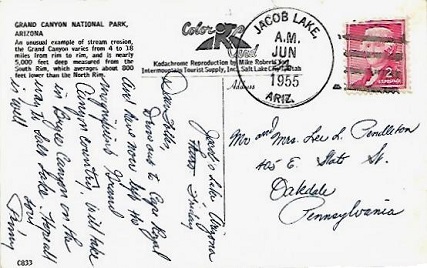 GRAND CANYON NATIONAL PARK,
ARIZONA
An unusual example of stream erosion,
the Grand Canyon varies from 4 to 18
miles from rim to rim, and is nearly
5,000 feet deep measured from the
South Rim, which averages about 800
feet lower than the North Rim.
Color
Card
Kodachrome Reproduction by Mike Roberts
Intermountain Tourist Supply, Inc., Salt Lake City, Utah
Address
JACOB LAKE,
A.M.
JUN
1955
ARIZ.
2¢
Jacob Lake, Arizona
Friday
Dear Folks,
Drove out to Cape Royal
and have now left the
magnificent Grand
Canyon country. Will take
in Bryce Canyon on the
way to Salt Lake.
is well.
Love,
Mr and Mrs. Lee L. Pendleton
405 E. State St.
Oakdale
Pennsylvania
C833